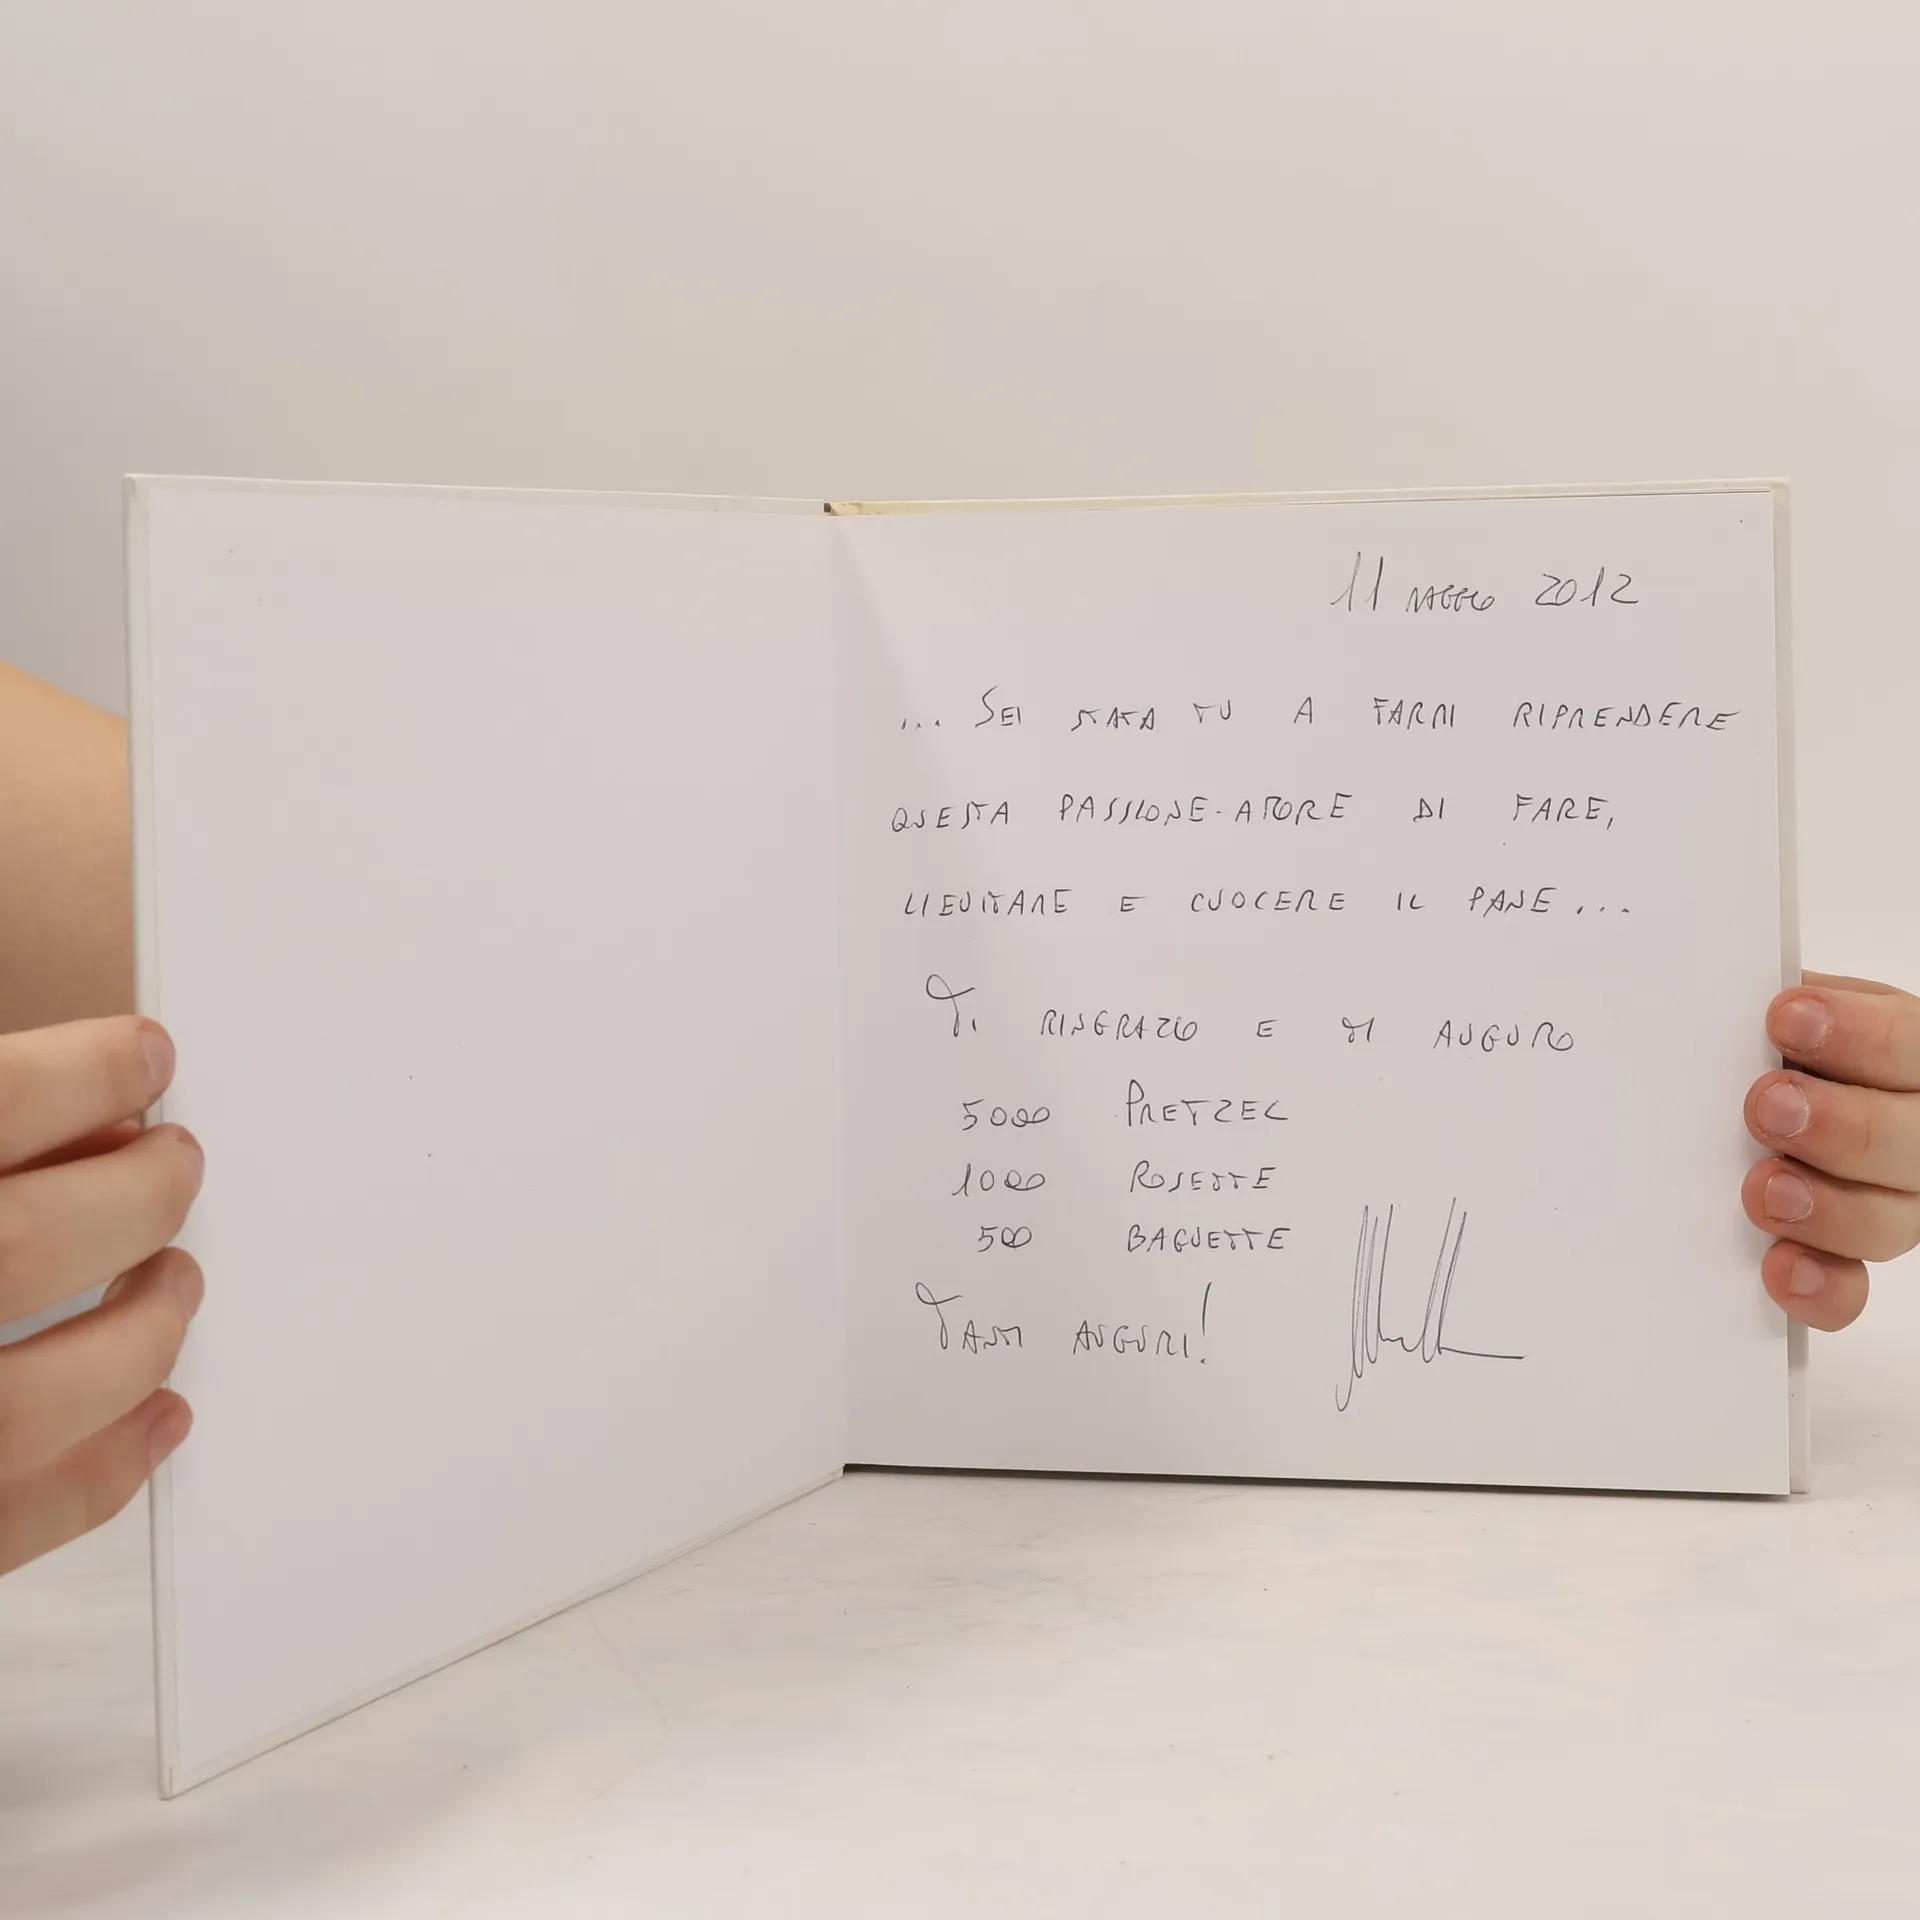 11 MAGGIO 2012
... SEI STATA TU A FARMI RIPRENDERE
QUESTA PASSIONE-AMORE DI FARE,
LIEVITARE E CUOCERE IL PANE...
TI RINGRAZIO E TI AUGURO
5000 PRETZEL
1000 ROSETTE
500 BAGUETTE
TANTI AUGURI!